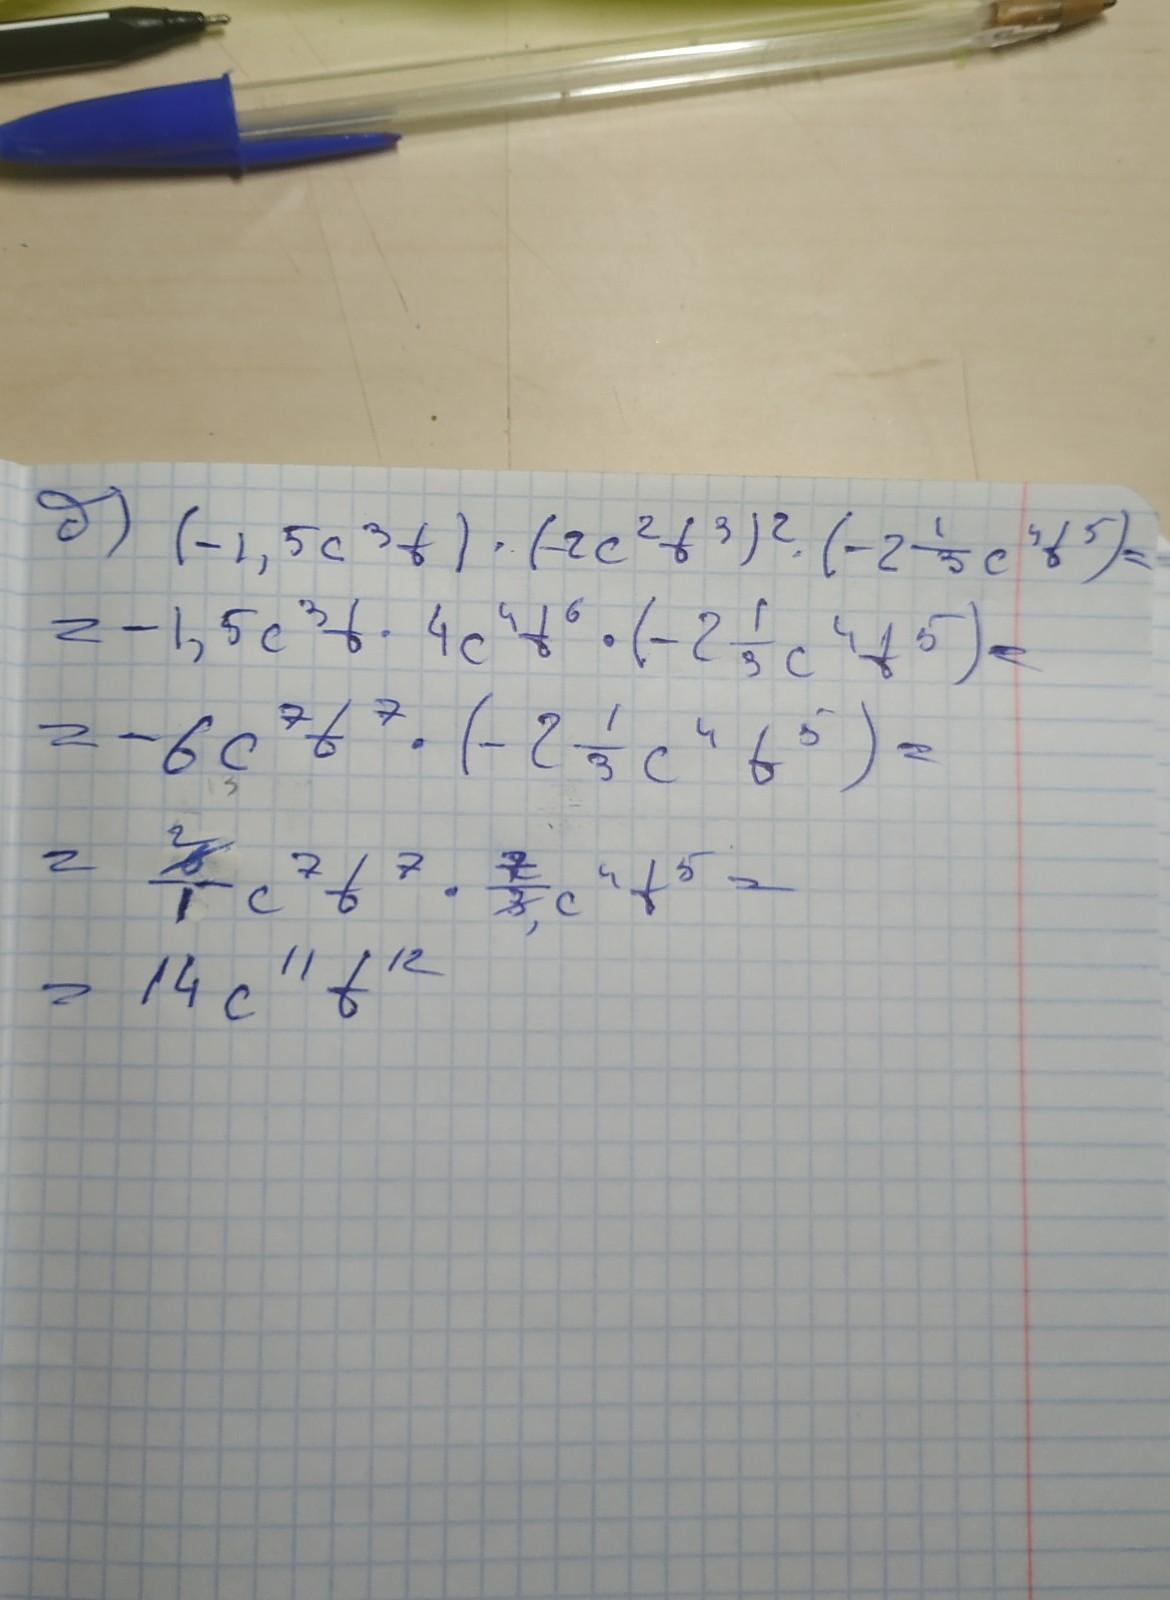 д) (-1,5c³b)·(-2c²b³)²·(-2 1/3 c⁴b⁵)=
=-1,5c³b·4c⁴b⁶·(-2 1/3 c⁴b⁵)=
=-6c⁷b⁷·(-2 1/3 c⁴b⁵)=
= 6/1 c⁷b⁷·7/3 c⁴b⁵=
=14c¹¹b¹²